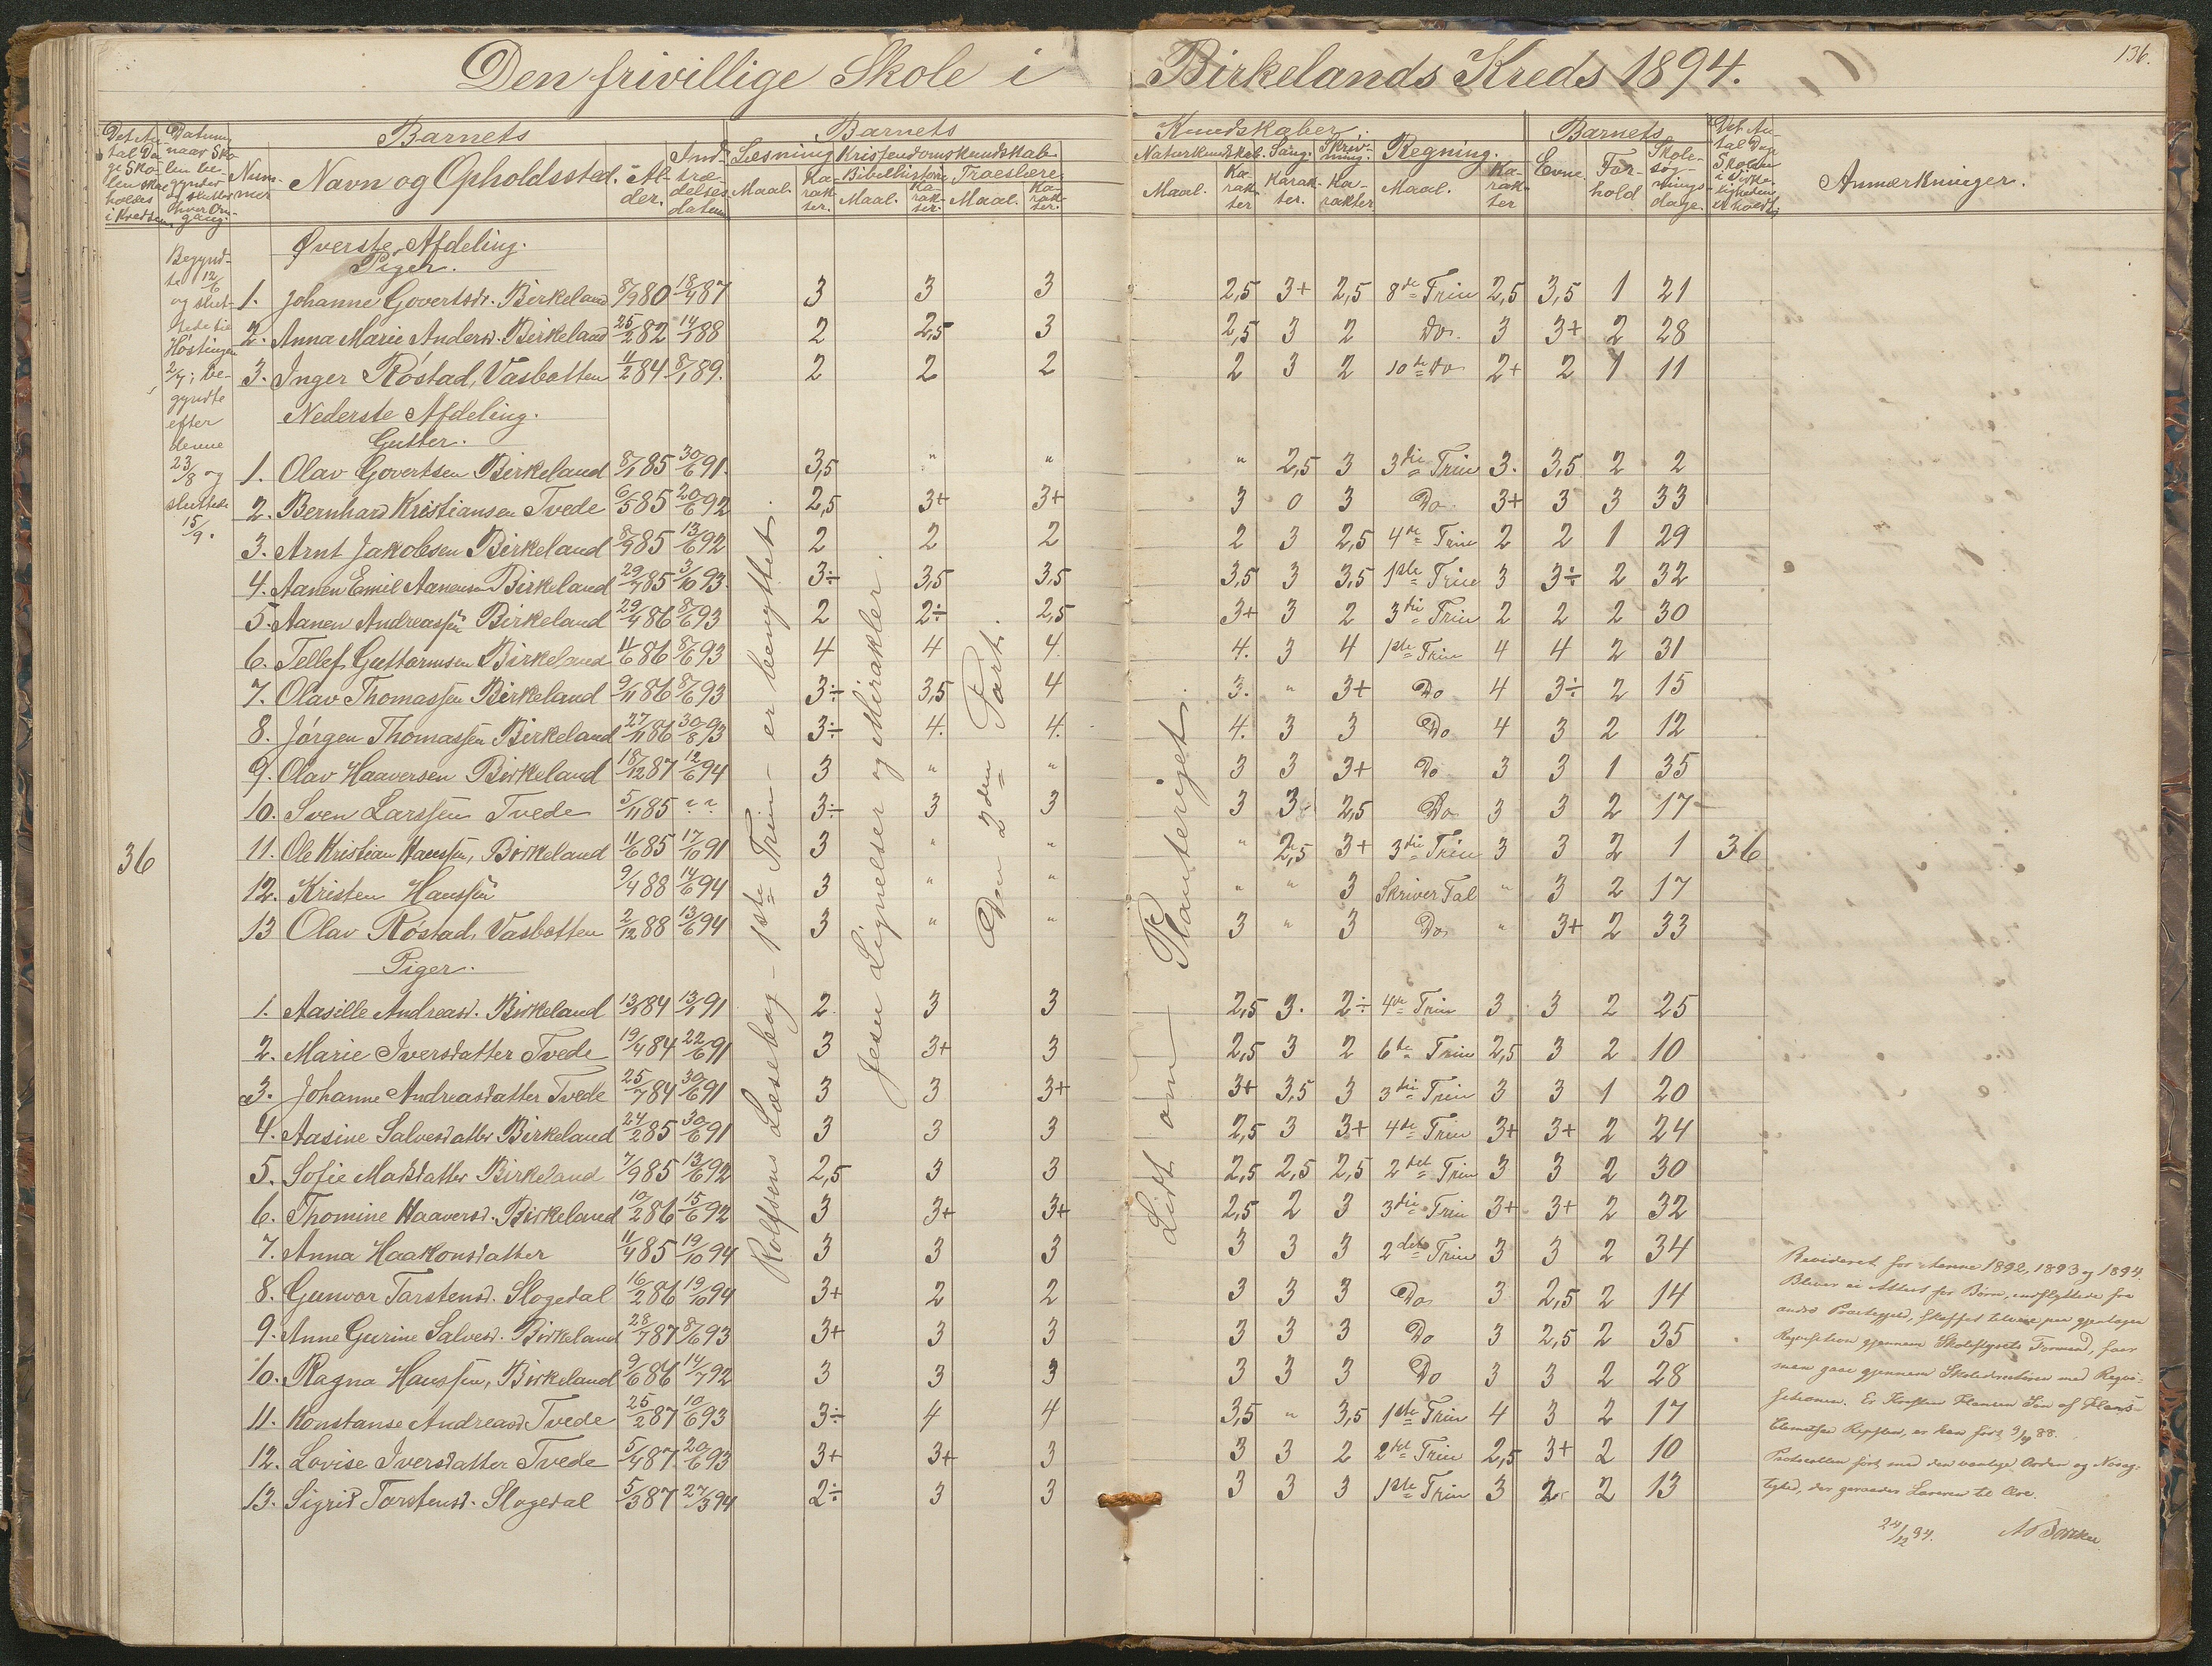 Den frivillige Skole i Birkelands Kreds 1894.
136.
Det An-
tal Da-
ge Sko-
len skal
holdes
i Kredsen.
Datum
naar Sko-
len be-
gynder
og slutter
hver Om-
gang.
Num-
mer
Barnets
Navn og Opholdssted.
Al-
der.
Ind-
træ-
delses-
datum
Barnets Kundskaber.
Læsning
Maal. Ka-
rak-
ter.
Kristendomskundskab
Bibelhistorie
Maal. Ka-
rak-
ter.
Troeslære
Maal. Ka-
rak-
ter.
Naturkundskab.
Maal. Ka-
rak-
ter
Sang.
Karak-
ter.
Skriv-
ning.
Ka-
rakter
Regning.
Maal. Ka-
rak-
ter
Barnets
Evne. For-
hold
Skole-
søg-
nings-
dage.
Det An-
tal Dage
Skolen
i Virke-
ligheden
er holdt.
Anmærkninger.
Begynd-
te 12/6
og slut-
tede til
Høstingen
2/7; be-
gyndte
efter
denne
23/8 og
sluttede
15/9.
36
Øverste Afdeling.
Piger.
1. Johanne Govertsdr. Birkeland 8/9 80 18/4 87 3 3 3 2,5 3+ 2,5 8de Trin 2,5 3,5 1 21
2. Anna Marie Andersd. Birkeland 25/2 82 14/1 88 2 2,5 3 2,5 3 2 Do. 3 3+ 2 28
3. Inger Røstad, Vasbotten 11/2 84 8/1 89. 2 2 2 2 3 2 10de Do 2+ 2 1 11
Nederste Afdeling.
Gutter.
1. Olav Govertsen Birkeland 8/1 85 30/6 91. 3,5 " " " 2,5 3 3die Trin 3. 3,5 2 2
2. Bernhard Kristiansen Tvede 6/5 85 20/6 92 2,5 3+ 3+ 3 0 3 Do. 3+ 3 3 33
3. Arnt Jakobsen Birkeland 8/9 85 13/6 92 2 2 2 2 3 2,5 4de Trin 2 2 1 29
4. Aanen Emil Aanensen Birkeland 29/7 85 3/10 93. 3÷ 3,5 3,5 3,5 3 3,5 1ste Trin 3 3÷ 2 32
5. Aanen Andreassen Birkeland 29/4 86 8/6 93 2 2÷ 2,5 3+ 3 2 3die Trin 2 2 2 30
6. Tellef Guttormsen Birkeland 11/6 86 8/6 93 4 4 4. 4. 3 4 1ste Trin 4 4 2 31
7. Olav Thomassen Birkeland 9/11 86 8/6 93 3÷ 3,5 4 3. " 3+ Do 4 3÷ 2 15
8. Jørgen Thomassen Birkeland 27/11 86 30/8 93 3÷ 4. 4. 4. 3 3 Do 4 3 2 12
9. Olav Haaversen Birkeland 18/12 87 12/6 94 3 " " 3 3 3+ Do 3 3 1 35
10. Sven Larssen Tvede 5/11 85 ? ? 3÷ 3 3 3 3 2,5 Do 3 3 2 17
11. Ole Kristian Hanssen, Birkeland 11/6 85 17/10 91 3 " " " 2,5 3+ 3die Trin 3 3 2 1 36
12. Kristen Hanssen 9/4 88 14/6 94 3 " " " " 3 Skriver Tal " 3 2 17
13 Olav Røstad, Vasbotten 2/12 88 13/6 94 3 " " 3 " 3 Do " 3+ 2 33
Piger.
1. Aasille Andreasd. Birkeland 13/1 84 13/1 91 2. 3 3 2,5 3. 2÷ 4de Trin 3 3 2 25
2. Marie Iversdatter Tvede 19/4 84 22/6 91 3 3+ 3 2,5 3 2 6te Trin 2,5 3 2 10
3. Johanne Andreasdatter Tvede 25/7 84 30/6 91 3 3 3+ 3+ 3,5 3 3die Trin 3 3 1 20
4. Aasine Salvesdatter Birkeland 24/2 85 30/6 91 3 3 3 2,5 3 3+ 4de Trin 3+ 3+ 2 24
5. Sofie Madsdatter Birkeland 7/9 85 13/6 92 2,5 3 3 2,5 2,5 2,5 2det Trin 3 3 2 30
6. Thomine Haaversd. Birkeland 10/2 86 15/6 92 3 3+ 3+ 2,5 2 3 3die Trin 3+ 3+ 2 32
7. Anna Haakonsdatter 11/4 85 19/10 94 3 3 3 3 3 3 2det Trin 3 3 2 34
8. Gunvor Tarstensd. Slogedal 16/2 86 19/10 94 3+ 2 2 3 3 3 Do 3 2,5 2 14
9. Anne Gurine Salvesd. Birkeland 28/7 87 8/6 93 3+ 3 3 3 3 3 Do 3 2,5 2 35
10. Ragna Hanssen, Birkeland 9/6 86 14/7 92 3 3 3 3 3 3 Do 3 3 2 28
11. Konstanse Andreasd. Tvede 25/2 87 10/6 93 3÷ 4 4 3,5 " 3,5 1ste Trin 4 3 2 17
12. Lovise Iversdatter Tvede 5/4 87. 20/6 93 3+ 3+ 3 3 3 2 2det Trin 2,5 3+ 2 10
13. Sigrid Torstensd. Slogedal 5/3 87 27/3 94 2÷ 3 3 3 3 3 1ste Trin 3 2 2 13
Rolfsens Læsebog - 1ste Trin - er benyttet.
Jesu Lignelser og Mirakler.
Den 2den Part.
Lidt om Planteriget.
Revideret for Aarene 1892, 1893 og 1894.
Bliver ei Attest for Børn, indflyttede fra
andre Præstegjeld,
gjennem Skolestyrets Formand, faar
man gaae gjennem Skoledirektøren med
er han født 9/4 88.
Protocollen ført med den vanlige Orden og Nøiag-
tighed, der Læreren til Ære.
24/12 94.